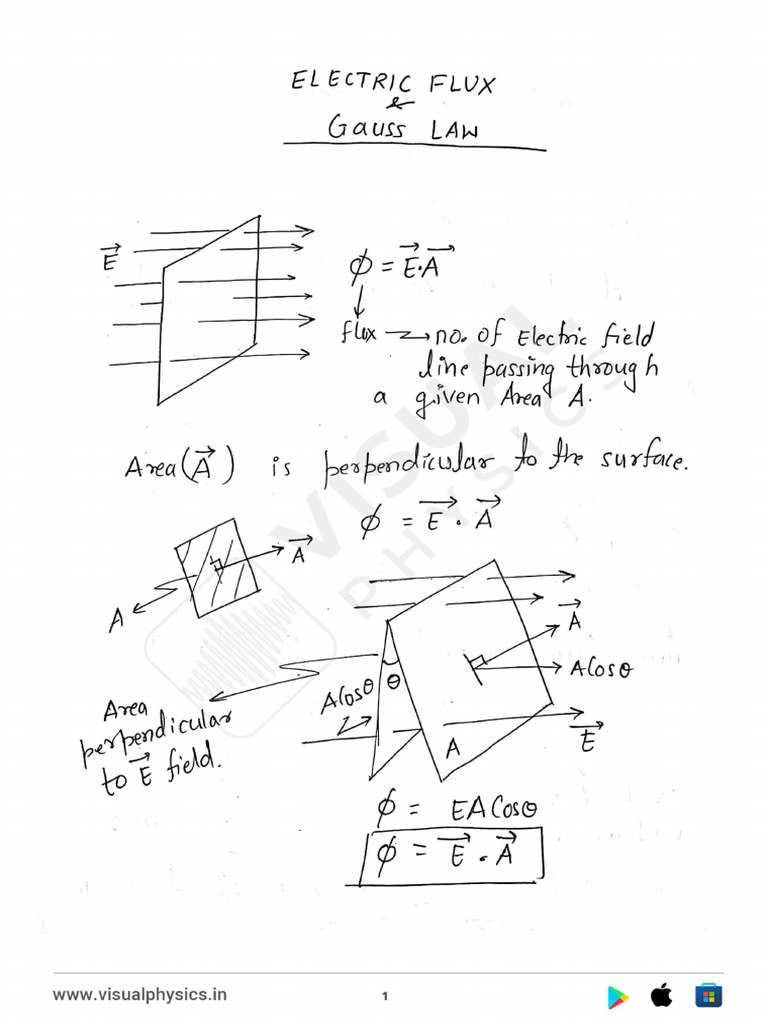 ELECTRIC FLUX
&
GAUSS LAW
E⃗
ϕ = E⃗·A⃗
flux → no. of Electric field
line passing through
a given Area A.
Area(A⃗) is perpendicular to the surface.
ϕ = E⃗ · A⃗
A⃗
A
A⃗
ACosθ
θ
ACosθ
Area
perpendicular
to E⃗ field.
A
E⃗
ϕ = EACosθ
ϕ = E⃗ · A⃗
VISUAL
PHYSICS
www.visualphysics.in
1